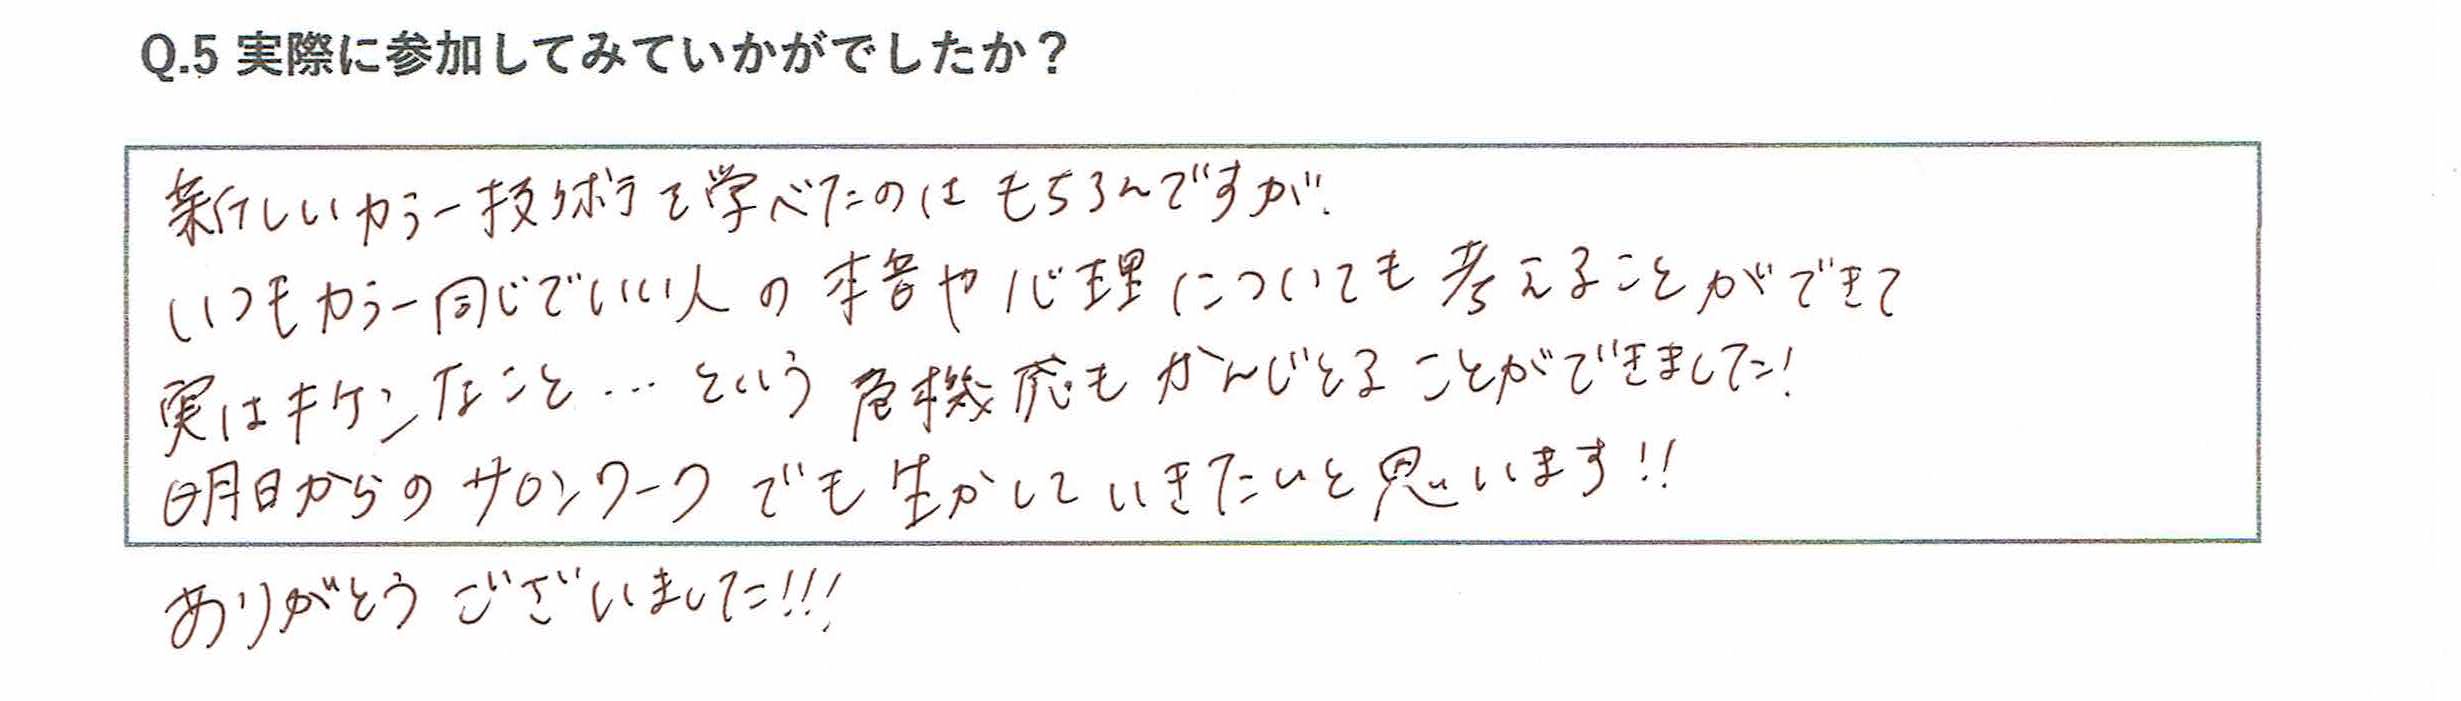 Q.5 実際に参加してみていかがでしたか？
新しいカラー技術を学べたのはもちろんですが、
いつもカラー同じでいい人の本音や心理についても考えることができて
実はキケンなこと…という危機感もかんじとることができました!
明日からのサロンワークでも生かしていきたいと思います!!
ありがとうございました!!!